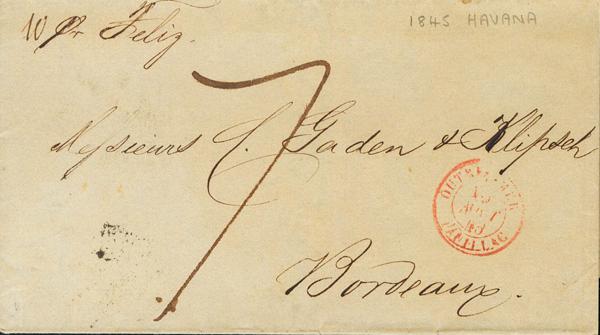 1845 HAVANA
10 pr Feliz.
7
Messieurs C. Gaden & Klipsch
OUTRE-MER
15
AOUT
45
PAUILLAC
Bordeaux.